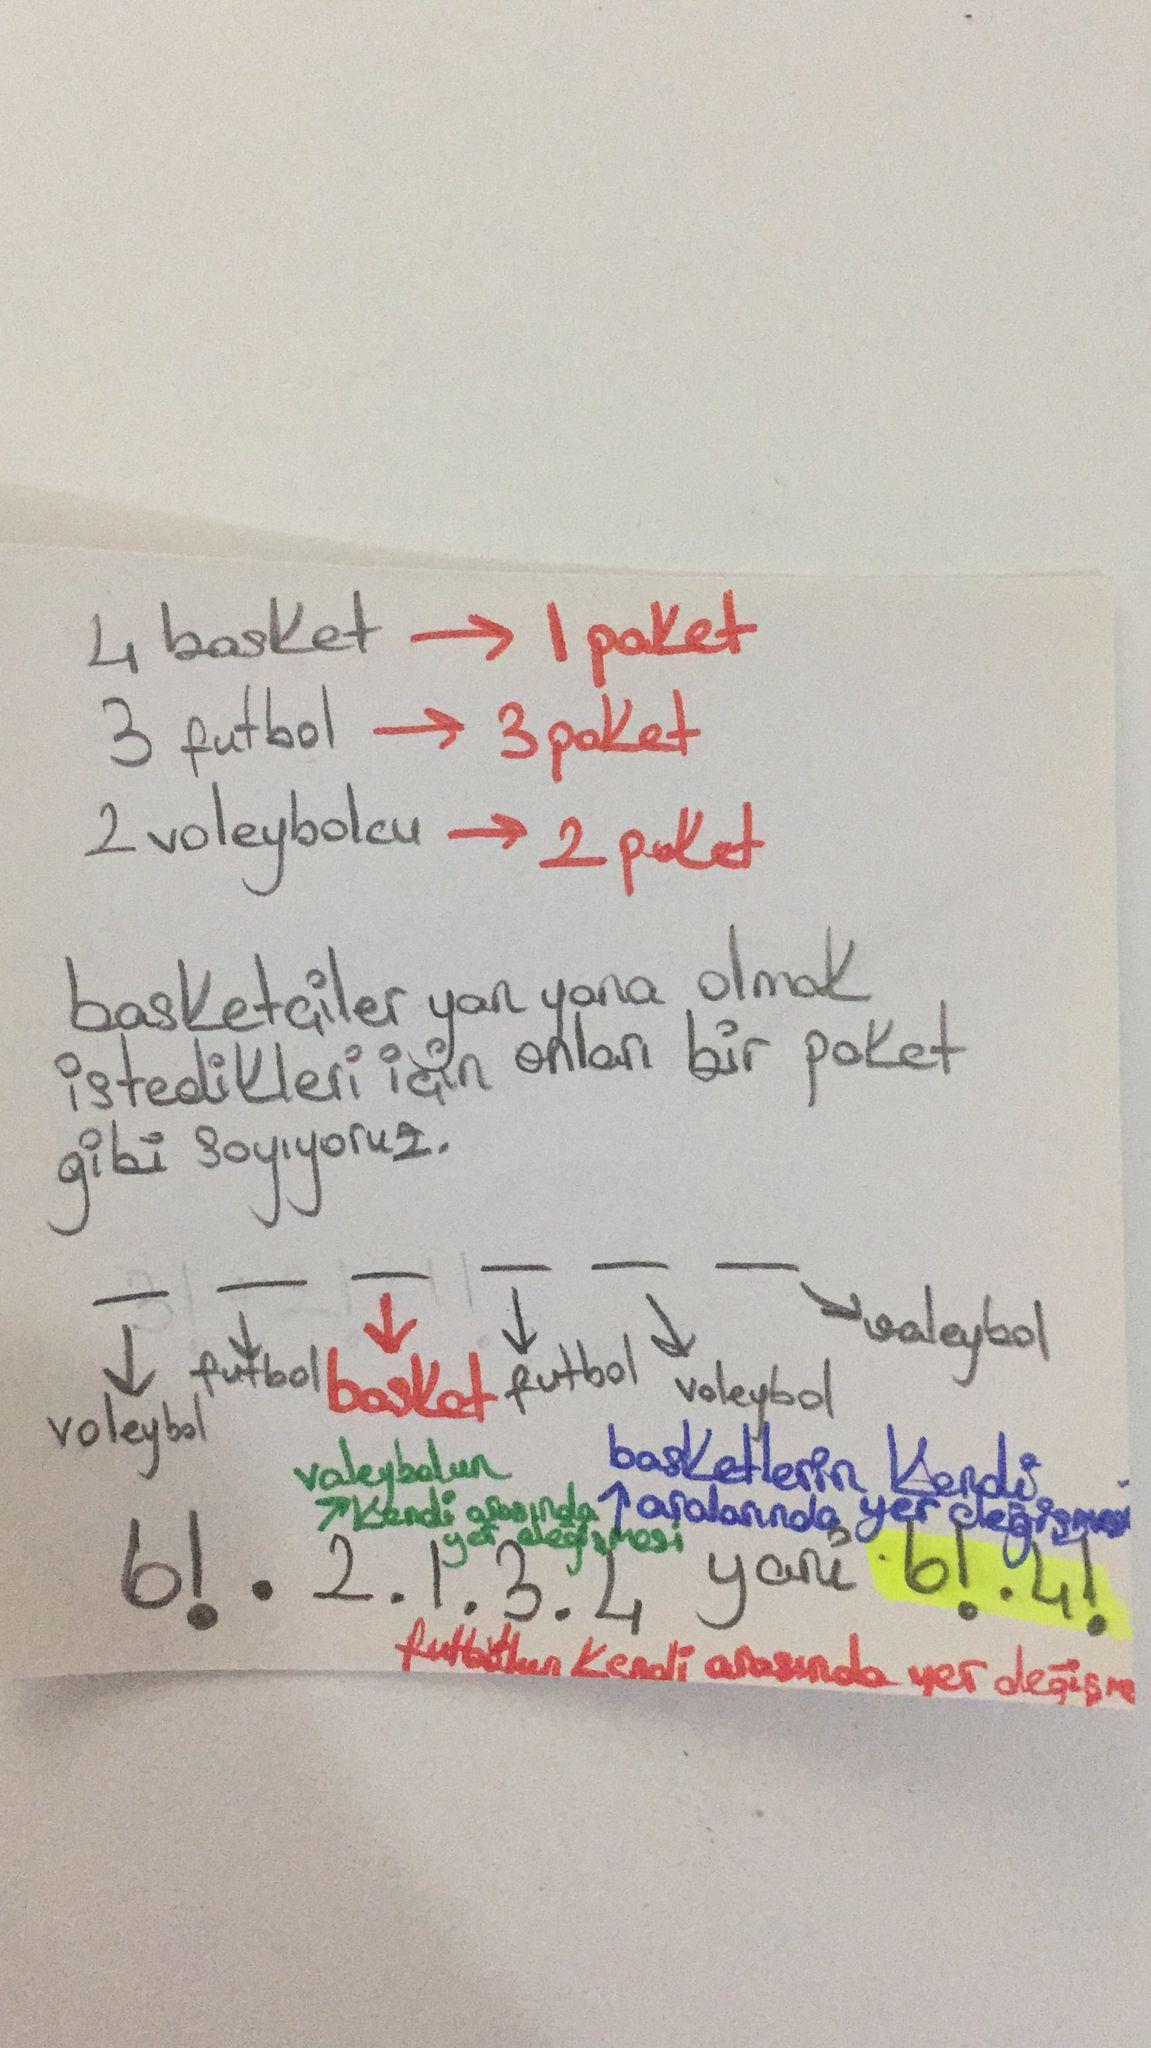 4 basket → 1 paket
3 futbol → 3 paket
2 voleybolcu → 2 paket
basketçiler yan yana olmak
istedikleri için onları bir paket
gibi sayıyoruz.
voleybol futbol basket futbol voleybol voleybol
voleybolun
kendi arasında
yer değişmesi
basketlerin kendi
aralarında yer değişmesi
6! . 2.1.3.4 yani 6!.4!
futbolun kendi arasında yer değişme